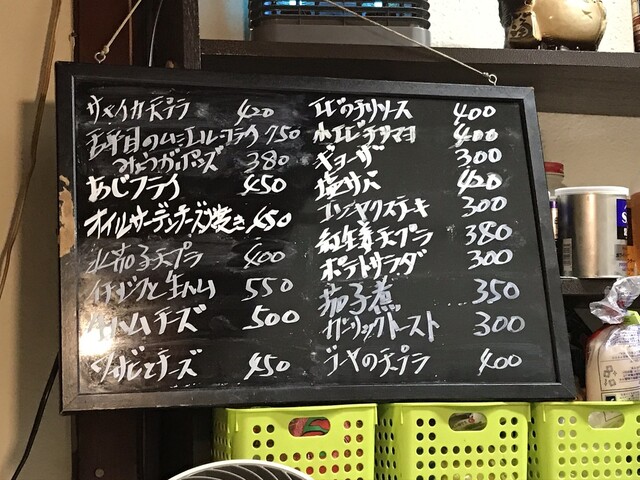 サメイカ天プラ 420
舌平目のムニエル・フライ 750
みょうがポンズ 380
あじフライ 450
オイルサーデンチーズ焼き 450
水茄子天プラ 400
イチジクと生ハム 550
生ハムチーズ 500
ワサビとチーズ 450
エビのチリソース 400
小エビチリマヨ 400
ギョーザ 300
塩サバ 420
コンニャクステーキ 300
紅生姜天プラ 380
ポテトサラダ 300
茄子煮 350
ガーリックトースト 300
ゴーヤの天プラ 400